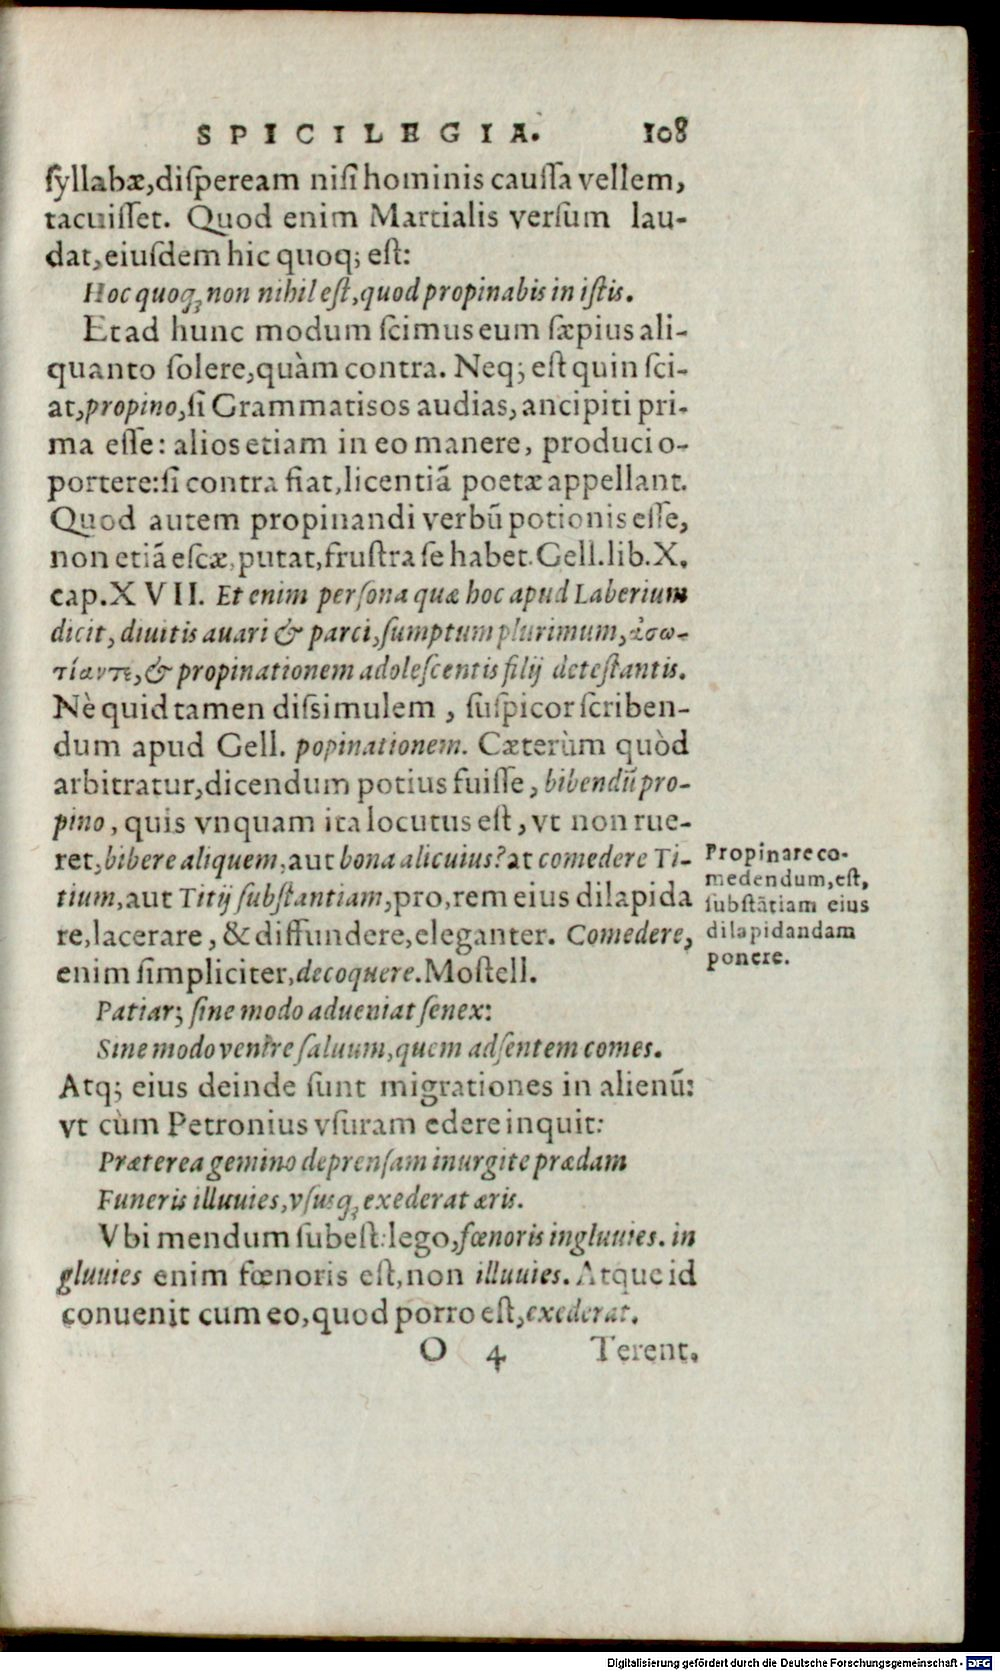 SPICILEGIA. 108
syllabæ, dispeream nisi hominis caussa vellem,
tacuisset. Quod enim Martialis versum lau-
dat, eiusdem hic quoq; est:
Hoc quoq; non nihil est, quod propinabis in istis.
Et ad hunc modum scimus eum sæpius ali-
quanto solere, quàm contra. Neq; est quin sci-
at, propino, si Grammatisos audias, ancipiti pri-
ma esse: alios etiam in eo manere, produci o-
portere: si contra fiat, licentiã poetæ appellant.
Quod autem propinandi verbũ potionis esse,
non etiã escæ, putat, frustra se habet. Gell. lib. X.
cap. XVII. Et enim persona quæ hoc apud Laberium
dicit, diuitis auari & parci, sumptum plurimum, ἀσω-
τίαντε, & propinationem adolescentis filij detestantis.
Nè quid tamen dissimulem, suspicor scriben-
dum apud Gell. popinationem. Cæterùm quòd
arbitratur, dicendum potius fuisse, bibendũ pro-
pino, quis vnquam ita locutus est, vt non rue-
ret, bibere aliquem, aut bona alicuius? at comedere Ti-
tium, aut Titij substantiam, pro, rem eius dilapida
re, lacerare, & diffundere, eleganter. Comedere,
enim simpliciter, decoquere. Mostell.
Patiar; sine modo adueniat senex:
Sine modo ventre saluum, quem adsentem comes.
Atq; eius deinde sunt migrationes in alienũ:
vt cùm Petronius vsuram edere inquit:
Præterea gemino deprensam inurgite prædam
Funeris illuuies, vsusq; exederat æris.
Vbi mendum subest: lego, fœnoris ingluuies. in
gluuies enim fœnoris est, non illuuies. Atque id
conuenit cum eo, quod porro est, exederat.
O 4 Terent.
Propinare co-
medendum, est,
substãtiam eius
dilapidandam
ponere.
Digitalisierung gefördert durch die Deutsche Forschungsgemeinschaft - DFG